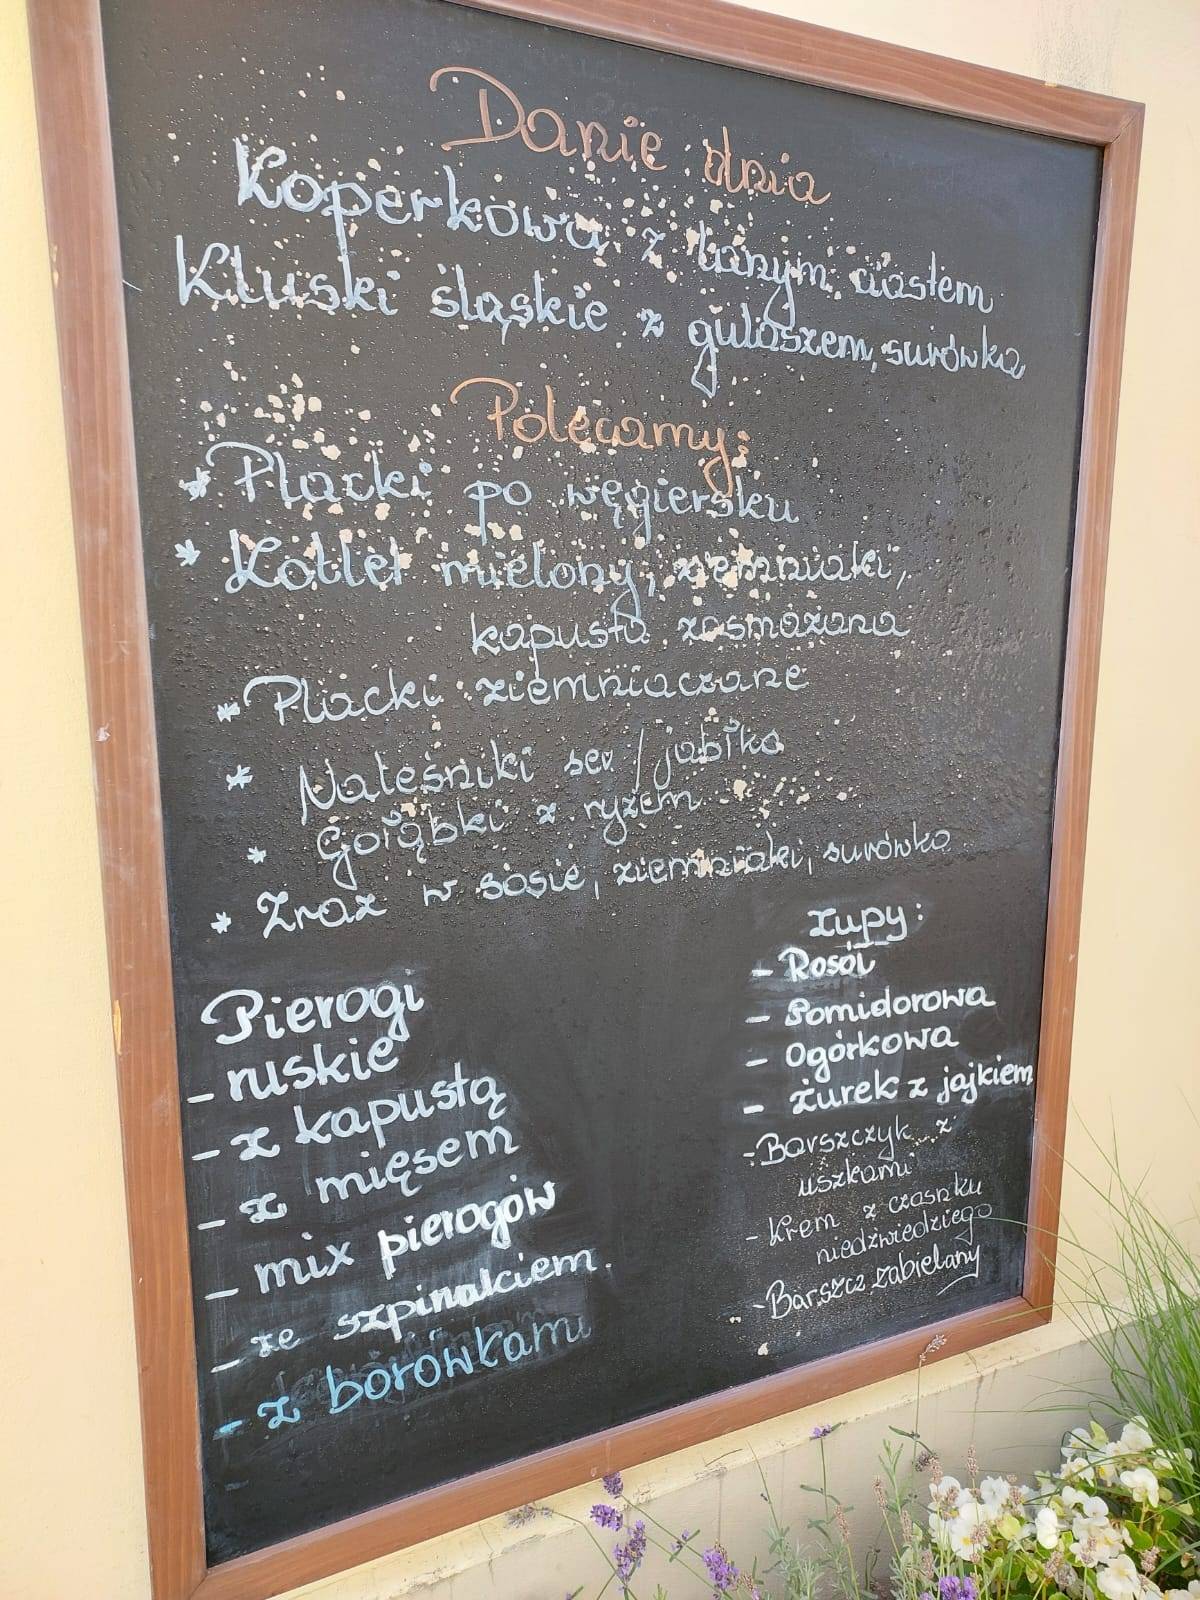 Danie dnia
Koperkowa z lanym ciastem
Kluski śląskie z gulaszem, surówka
Polecamy:
* Placki po węgiersku
* Kotlet mielony, ziemniaki,
kapusta zasmażana
* Placki ziemniaczane
* Naleśniki ser / jabłko
* Gołąbki z ryżem
* Zraz w sosie, ziemniaki, surówka
Pierogi
- ruskie
- z kapustą
- z mięsem
- mix pierogów
- ze szpinakiem.
- z borówkami
zupy:
- Rosół
- Pomidorowa
- Ogórkowa
- żurek z jajkiem
- Barszczyk z
uszkami
- Krem z czosnku
niedźwiedziego
- Barszcz zabielany